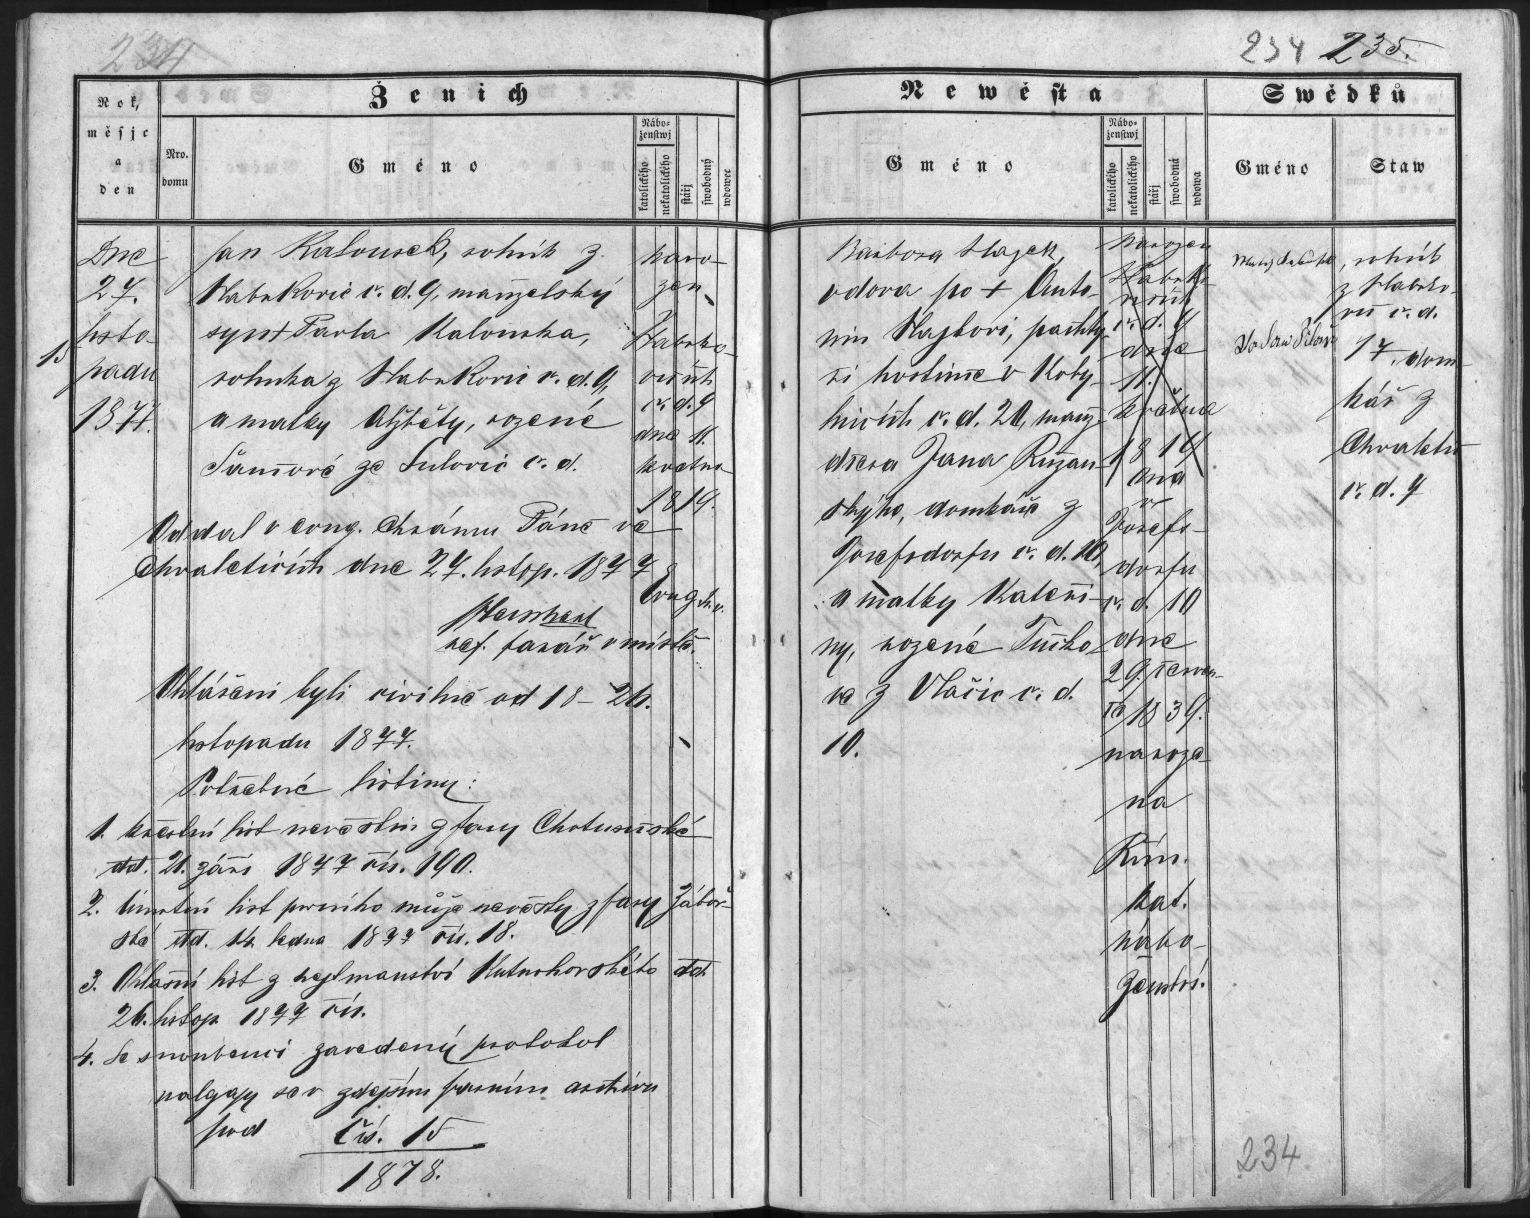 234
Rok, měsjc a den
Nro. domu
Ženich
Gméno
Nábo-ženstwj
katolického
nekatolického
stářj
swobodný
wdowec
Dne
27.
listo-
padu
1877.
15
Jan Kalousek, rolník z
Habrkovic č. d. 9, manželský
syn + Pavla Kalouska,
rolníka z Habrkovic č. d. 9,
a matky Alžběty, rozené
ze Sulovic č. d.
naro-
zen
v
Habrko-
vicích
č. d. 9
dne 11.
května
1819.
Oddal v evang. chrámu Páně ve
Chvaleticích dne 27. listop. 1877
ref. farář v místě.
Evang. h. v.
Ohlášeni byli civilně od 18 – 26.
listopadu 1877.
Potřebné listiny:
1. křestní list nevěstin z fary Chotusické
dtd. 21. září 1877 čís. 190.
2. Úmrtní list prvního muže nevěsty z fary Záboř-
ské dtd. 14. ledna 1877 čís. 18.
3. Ohlašní list z hejtmanství Kutnohorského dtd.
26. listop. 1877 čís.
4. Se snoubenci zavedený protokol
nalezají se v zdejším farním archivu
pod Čís. 15
1878.
234 235.
Newěsta
Gméno
Nábo-ženstwj
katolického
nekatolického
stářj
swobodná
wdowa
Swědků
Gméno
Staw
Barbora Hájek,
vdova po + Anto-
nín Hájkovi, pachtý-
ři hostince v Koby-
lnicích č. d. 20, manž.
dcera Jana Ružan-
ského, domkáře z
Josefsdorfu č. d. 10,
a matky Kateři-
ny, rozené
z Vlačic č. d.
10.
Narozen
Habrko-
vicích
č. d. 9
dne
11.
května
1819
ona
v
Josefs-
dorfu
č. d. 10
dne
29. červen-
ce 1839.
naroze-
na
Řím.
kat.
nábo-
ženství.
, rolník
z Habrko-
vic č. d.
17, dom-
kář z
Chvaletic
č. d. 7
234